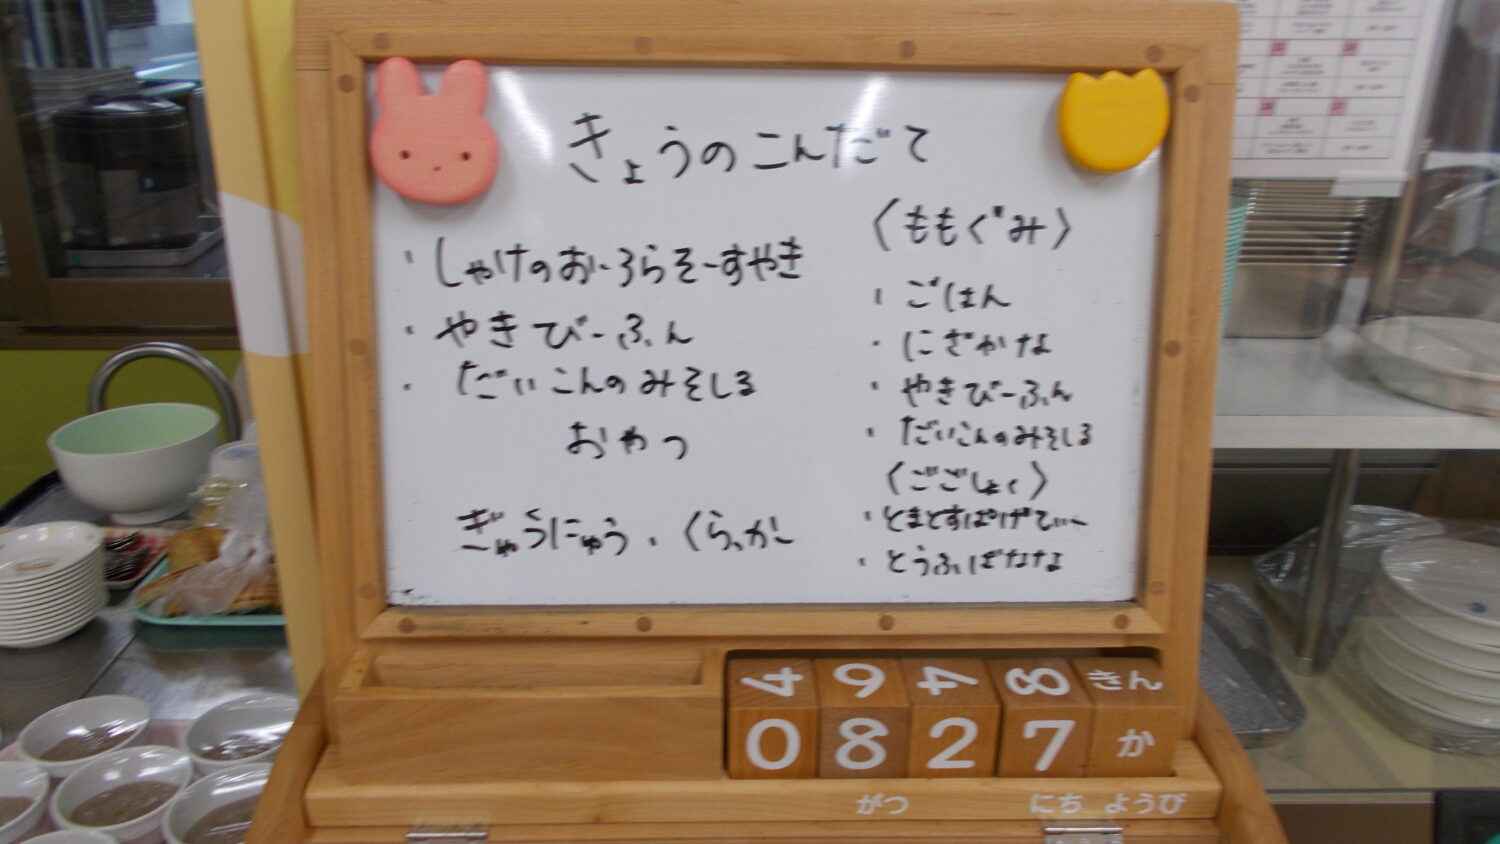 きょうのこんだて
・しゃけのおーろらそーすやき
・やきびーふん
・だいこんのみそしる
おやつ
ぎゅうにゅう・くらっか
〈ももぐみ〉
・ごはん
・にざかな
・やきびーふん
・だいこんのみそしる
〈ごごしょく〉
・とまとすぱげてぃー
・とうふばなな
4 6 4 8 きん
0 8 2 7 か
がつ にち ようび